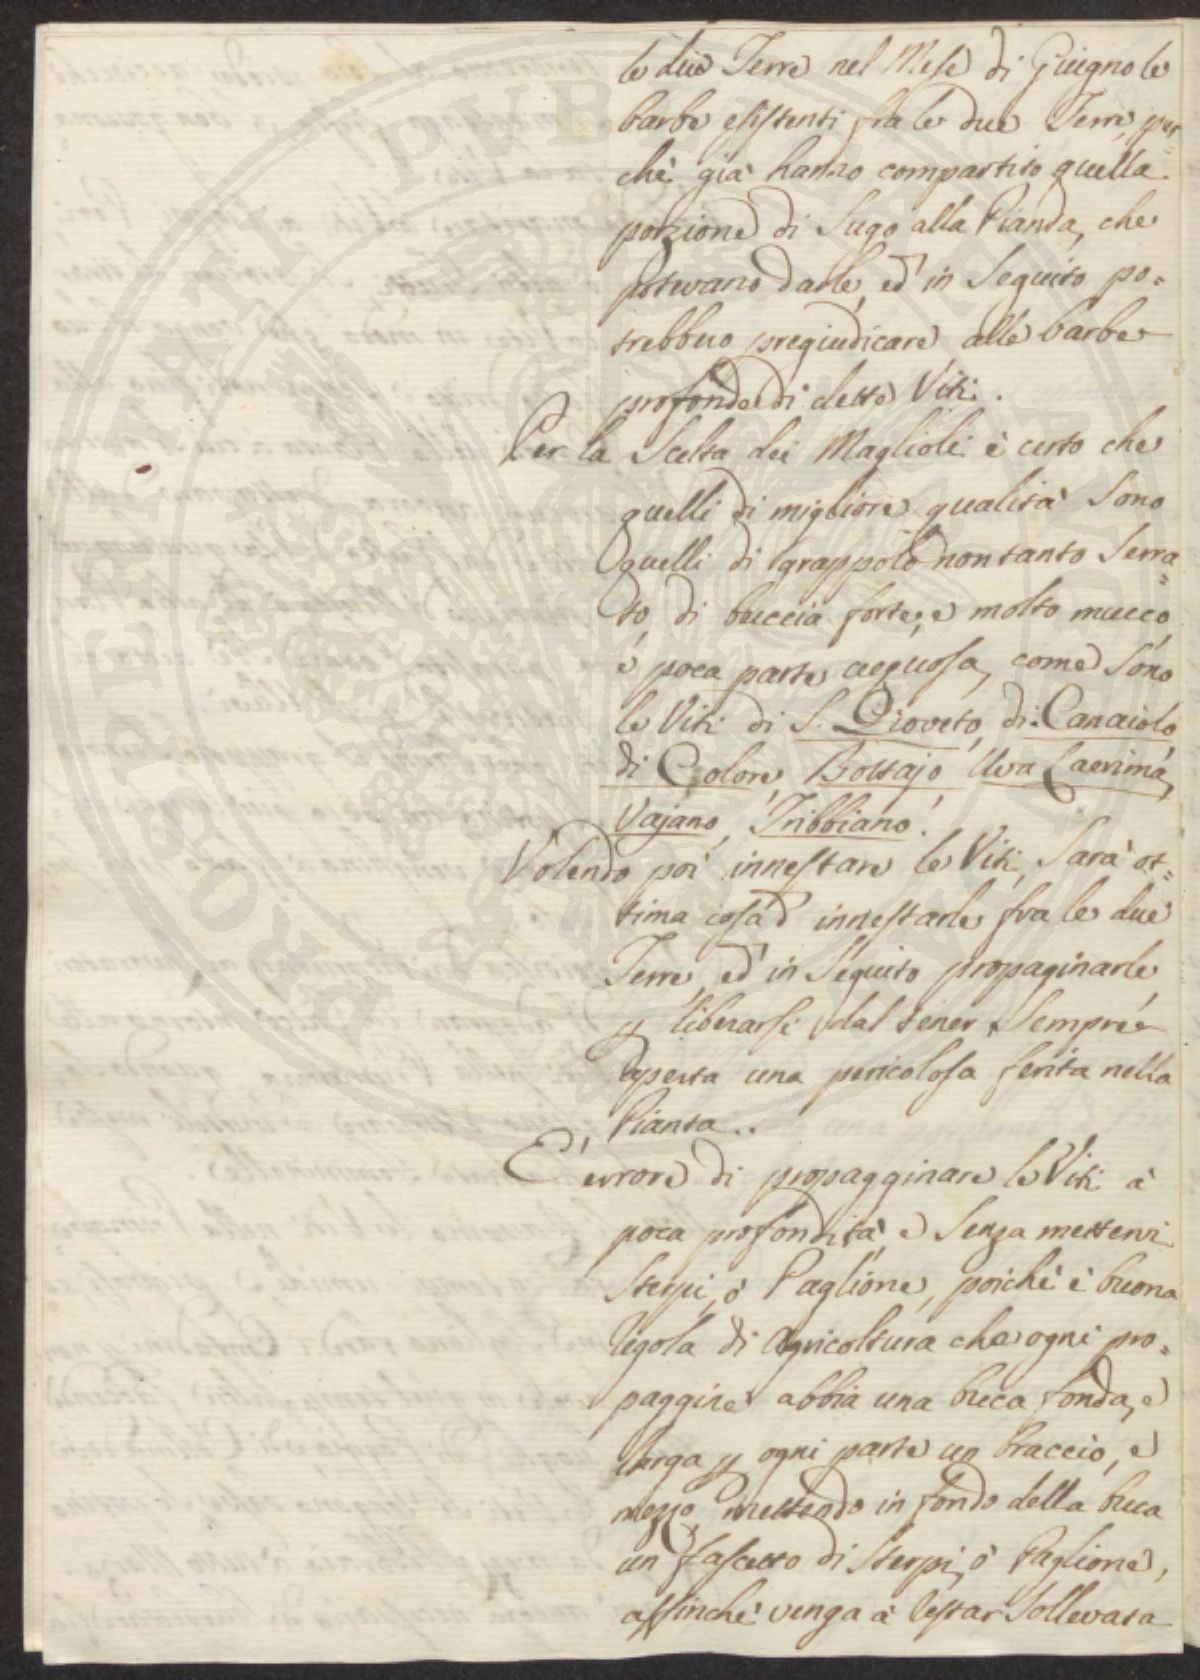 le due Terre nel Mese di Giugno le
barbe esistenti fra le due Terre, per-
chè già hanno compartito quella
porzione di Sugo alla Pianta, che
potevano darle, ed in Seguito po-
trebbero pregiudicare alle barbe
profonde di dette Viti.
Per la Scelta dei Maglioli è certo che
quelli di migliore qualità Sono
quelli di grappolo non tanto Serra-
to, di buccia forte, e molto mucco
e poca parte acquosa, come Sono
le Viti di S. Gioveto, di Canaiolo
di Colore, Bottajo, Uva Lacrima,
Vajano, Tribbiano.
Volendo poi innestare le Viti, Sarà ot-
tima cosa d'innestarle fra le due
Terre, ed in Seguito propaginarle
p liberarsi dal tener Sempre
aperta una pericolosa ferita nella
Pianta..
E' errore di propagginare le Viti à
poca profondità, e Senza mettervi
Sterpi, ò Paglione, poichè è buona
regola di Agricoltura che ogni pro-
paggine abbia una buca fonda, e
larga p ogni parte un braccio, e
mezzo, mettendo in fondo della buca
un fascetto di Sterpi, ò Paglione,
affinchè venga à restar Sollevata
PROSPERITATI PUBLICAE AUGENDAE